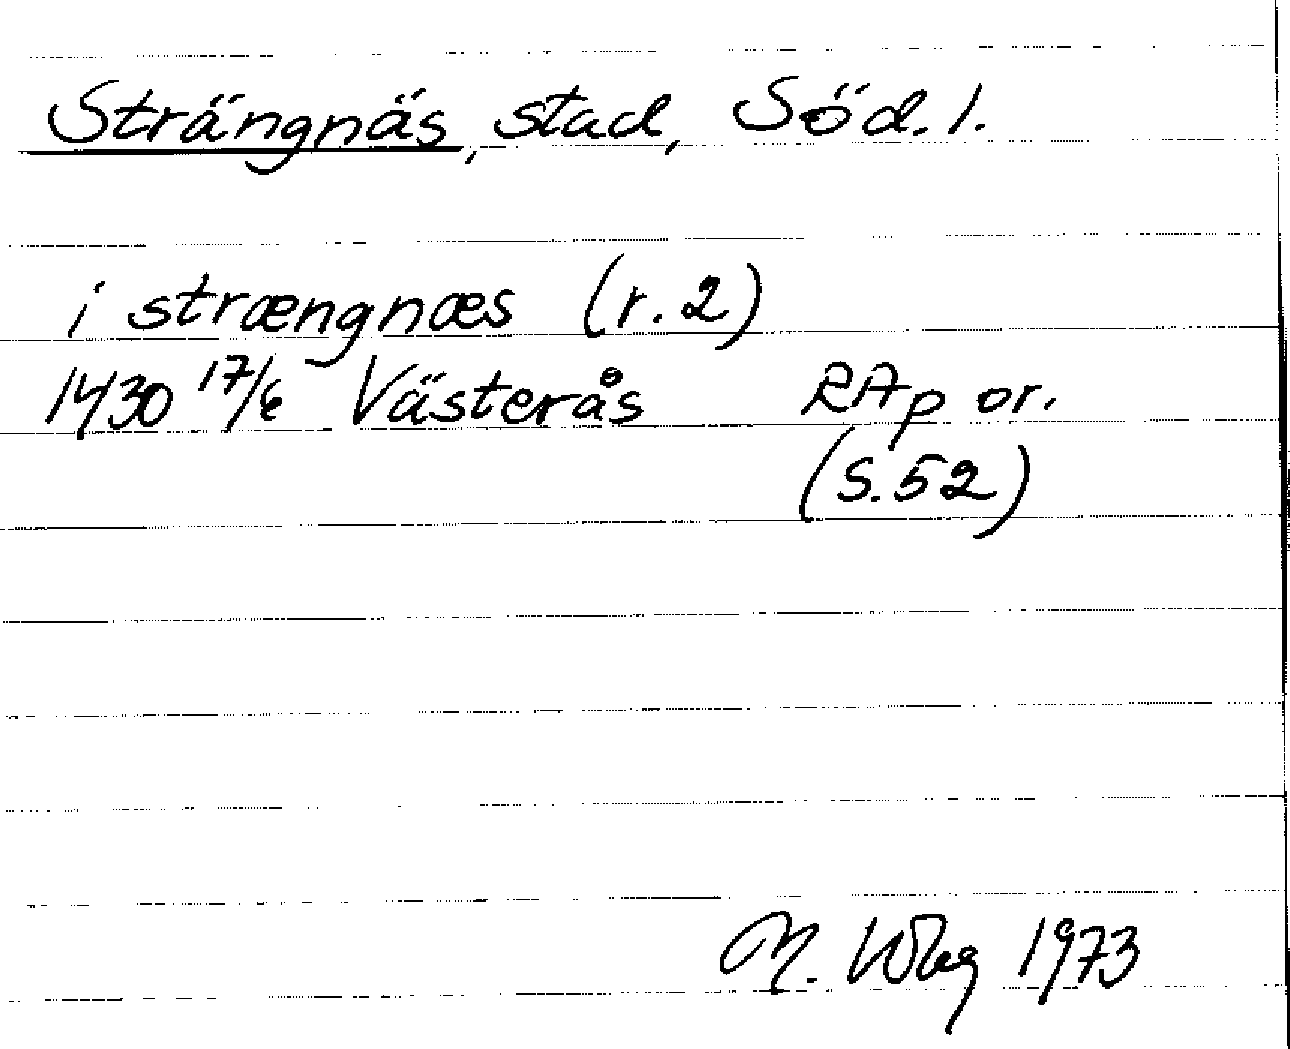 Strängnäs, stad, Söd. l.
i strængnæs (r. 2)
1430 17/6 Västerås RAp or.
(S. 52)
M. Wbg 1973